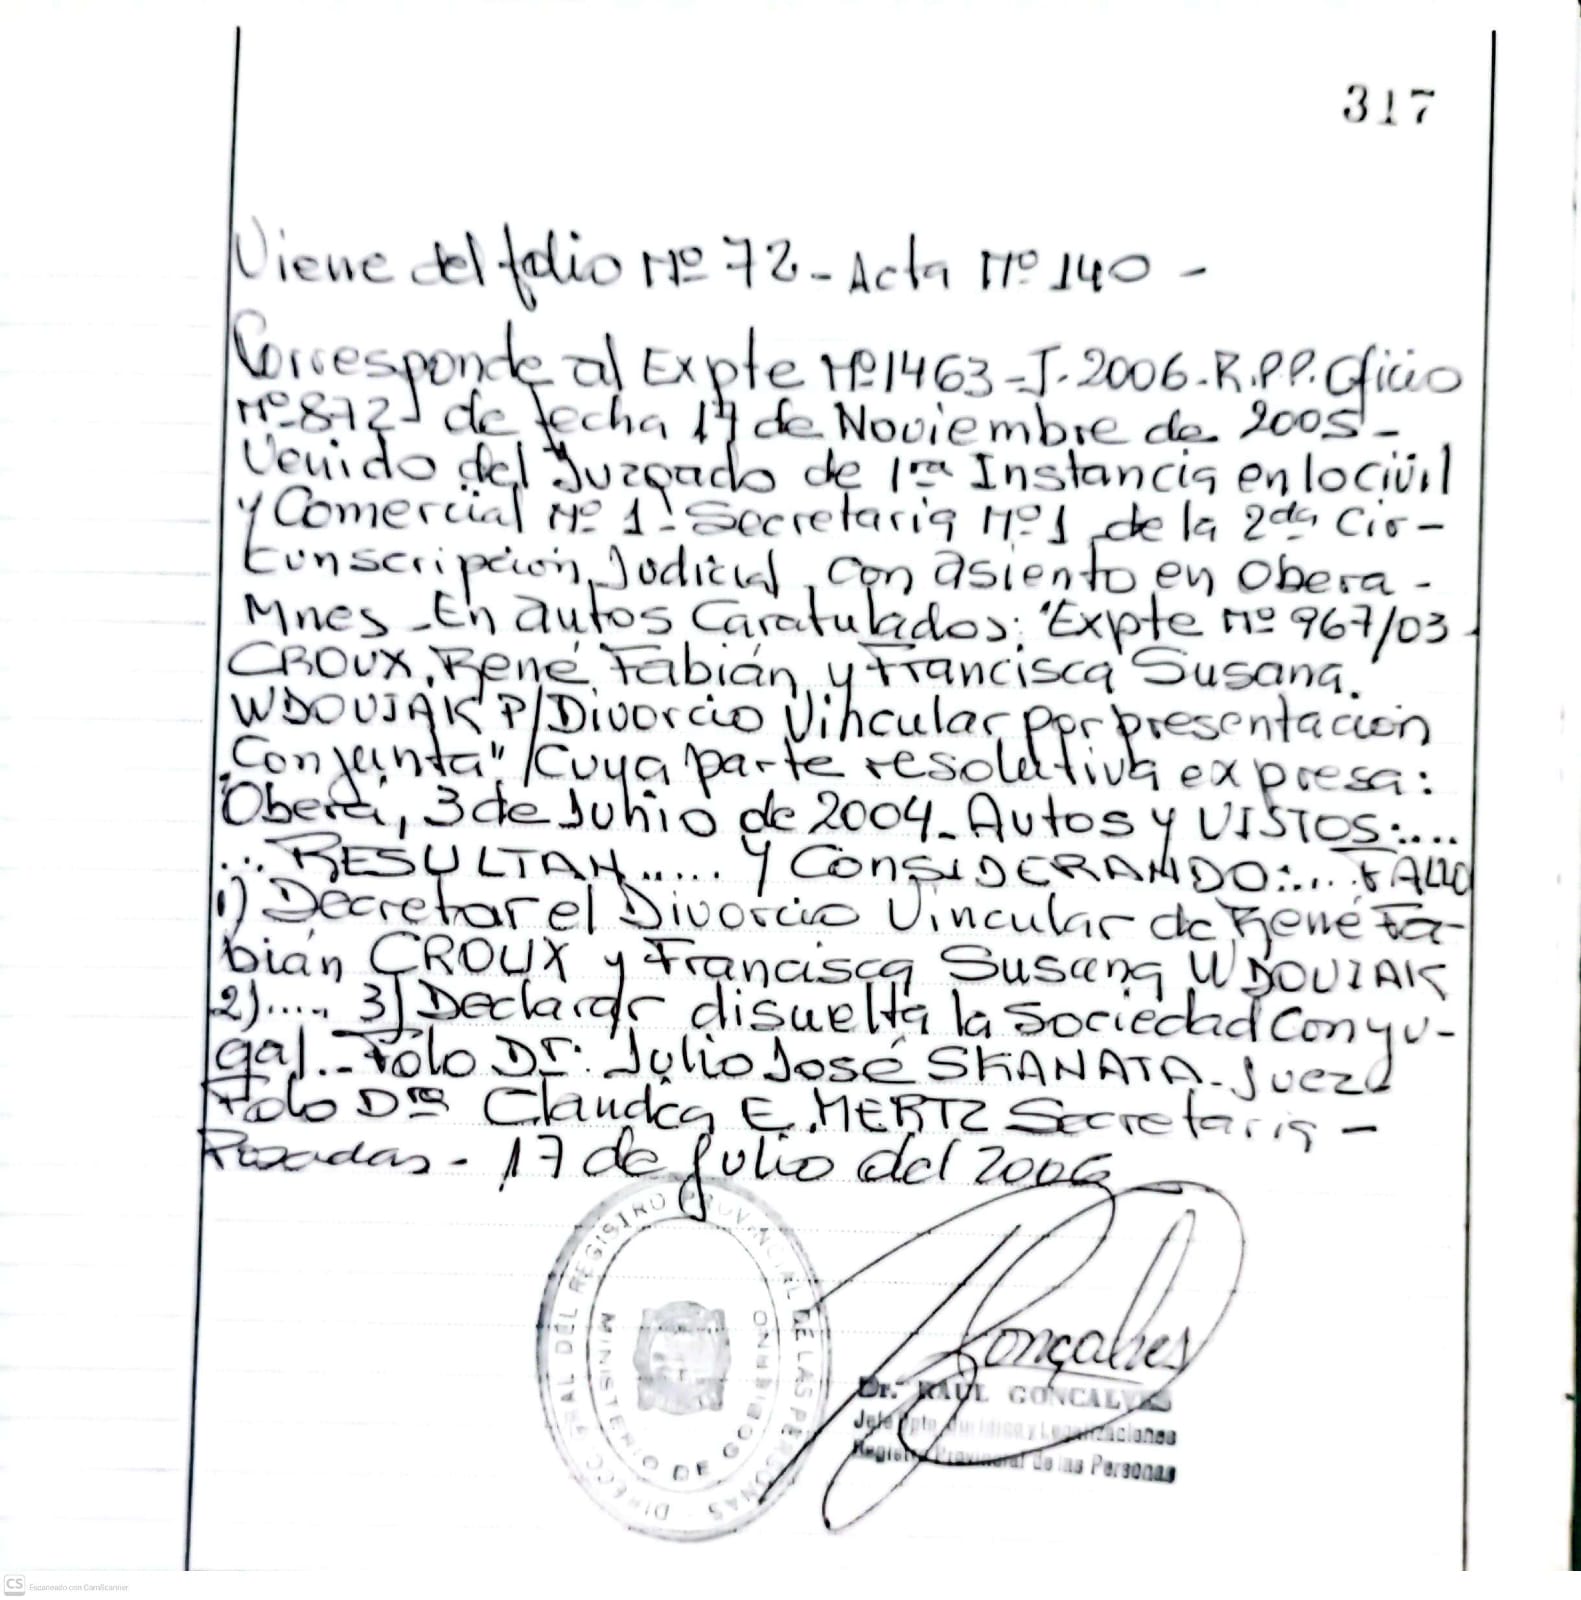 317
Viene del folio Nº 72 - Acta Nº 140 -
Corresponde al Expte Nº 1463-J-2006-R.P.P. Oficio
Nº 872 de fecha 17 de Noviembre de 2005-
Venido del Juzgado de 1ra Instancia en lo Civil
y Comercial Nº 1- Secretaria Nº 1 de la 2da Cir-
cunscripción Judicial, con asiento en Obera -
Mnes - En autos Caratulados: "Expte Nº 967/03
CROUX, René Fabián y Francisca Susana.
WDOVIAK P/Divorcio Vincular por presentación
Conjunta" /Cuya parte resolutiva expresa:
"Oberá, 3 de Junio de 2004- Autos y VISTOS:....
... RESULTAN..... Y CONSIDERANDO:... FALLO
1) Decretar el Divorcio Vincular de René Fa-
bián CROUX y Francisca Susana WDOVIAK
2)..... 3) Declarar disuelta la Sociedad Conyu-
gal.- Fdo Dr: Julio José SKANATA- Juez
Fdo Dra Claudia E. MERTZ Secretaria -
Posadas - 17 de Julio del 2006
DIRECC. GRAL DEL REGISTRO PROVINCIAL DE LAS PERSONAS -
MINISTERIO DE GOBIERNO
Gonçalves
Dr. RAUL GONCALVES
Jefe Dpto. Jurídico y Legalizaciones
Registro Provincial de las Personas
CS Escaneado con CamScanner